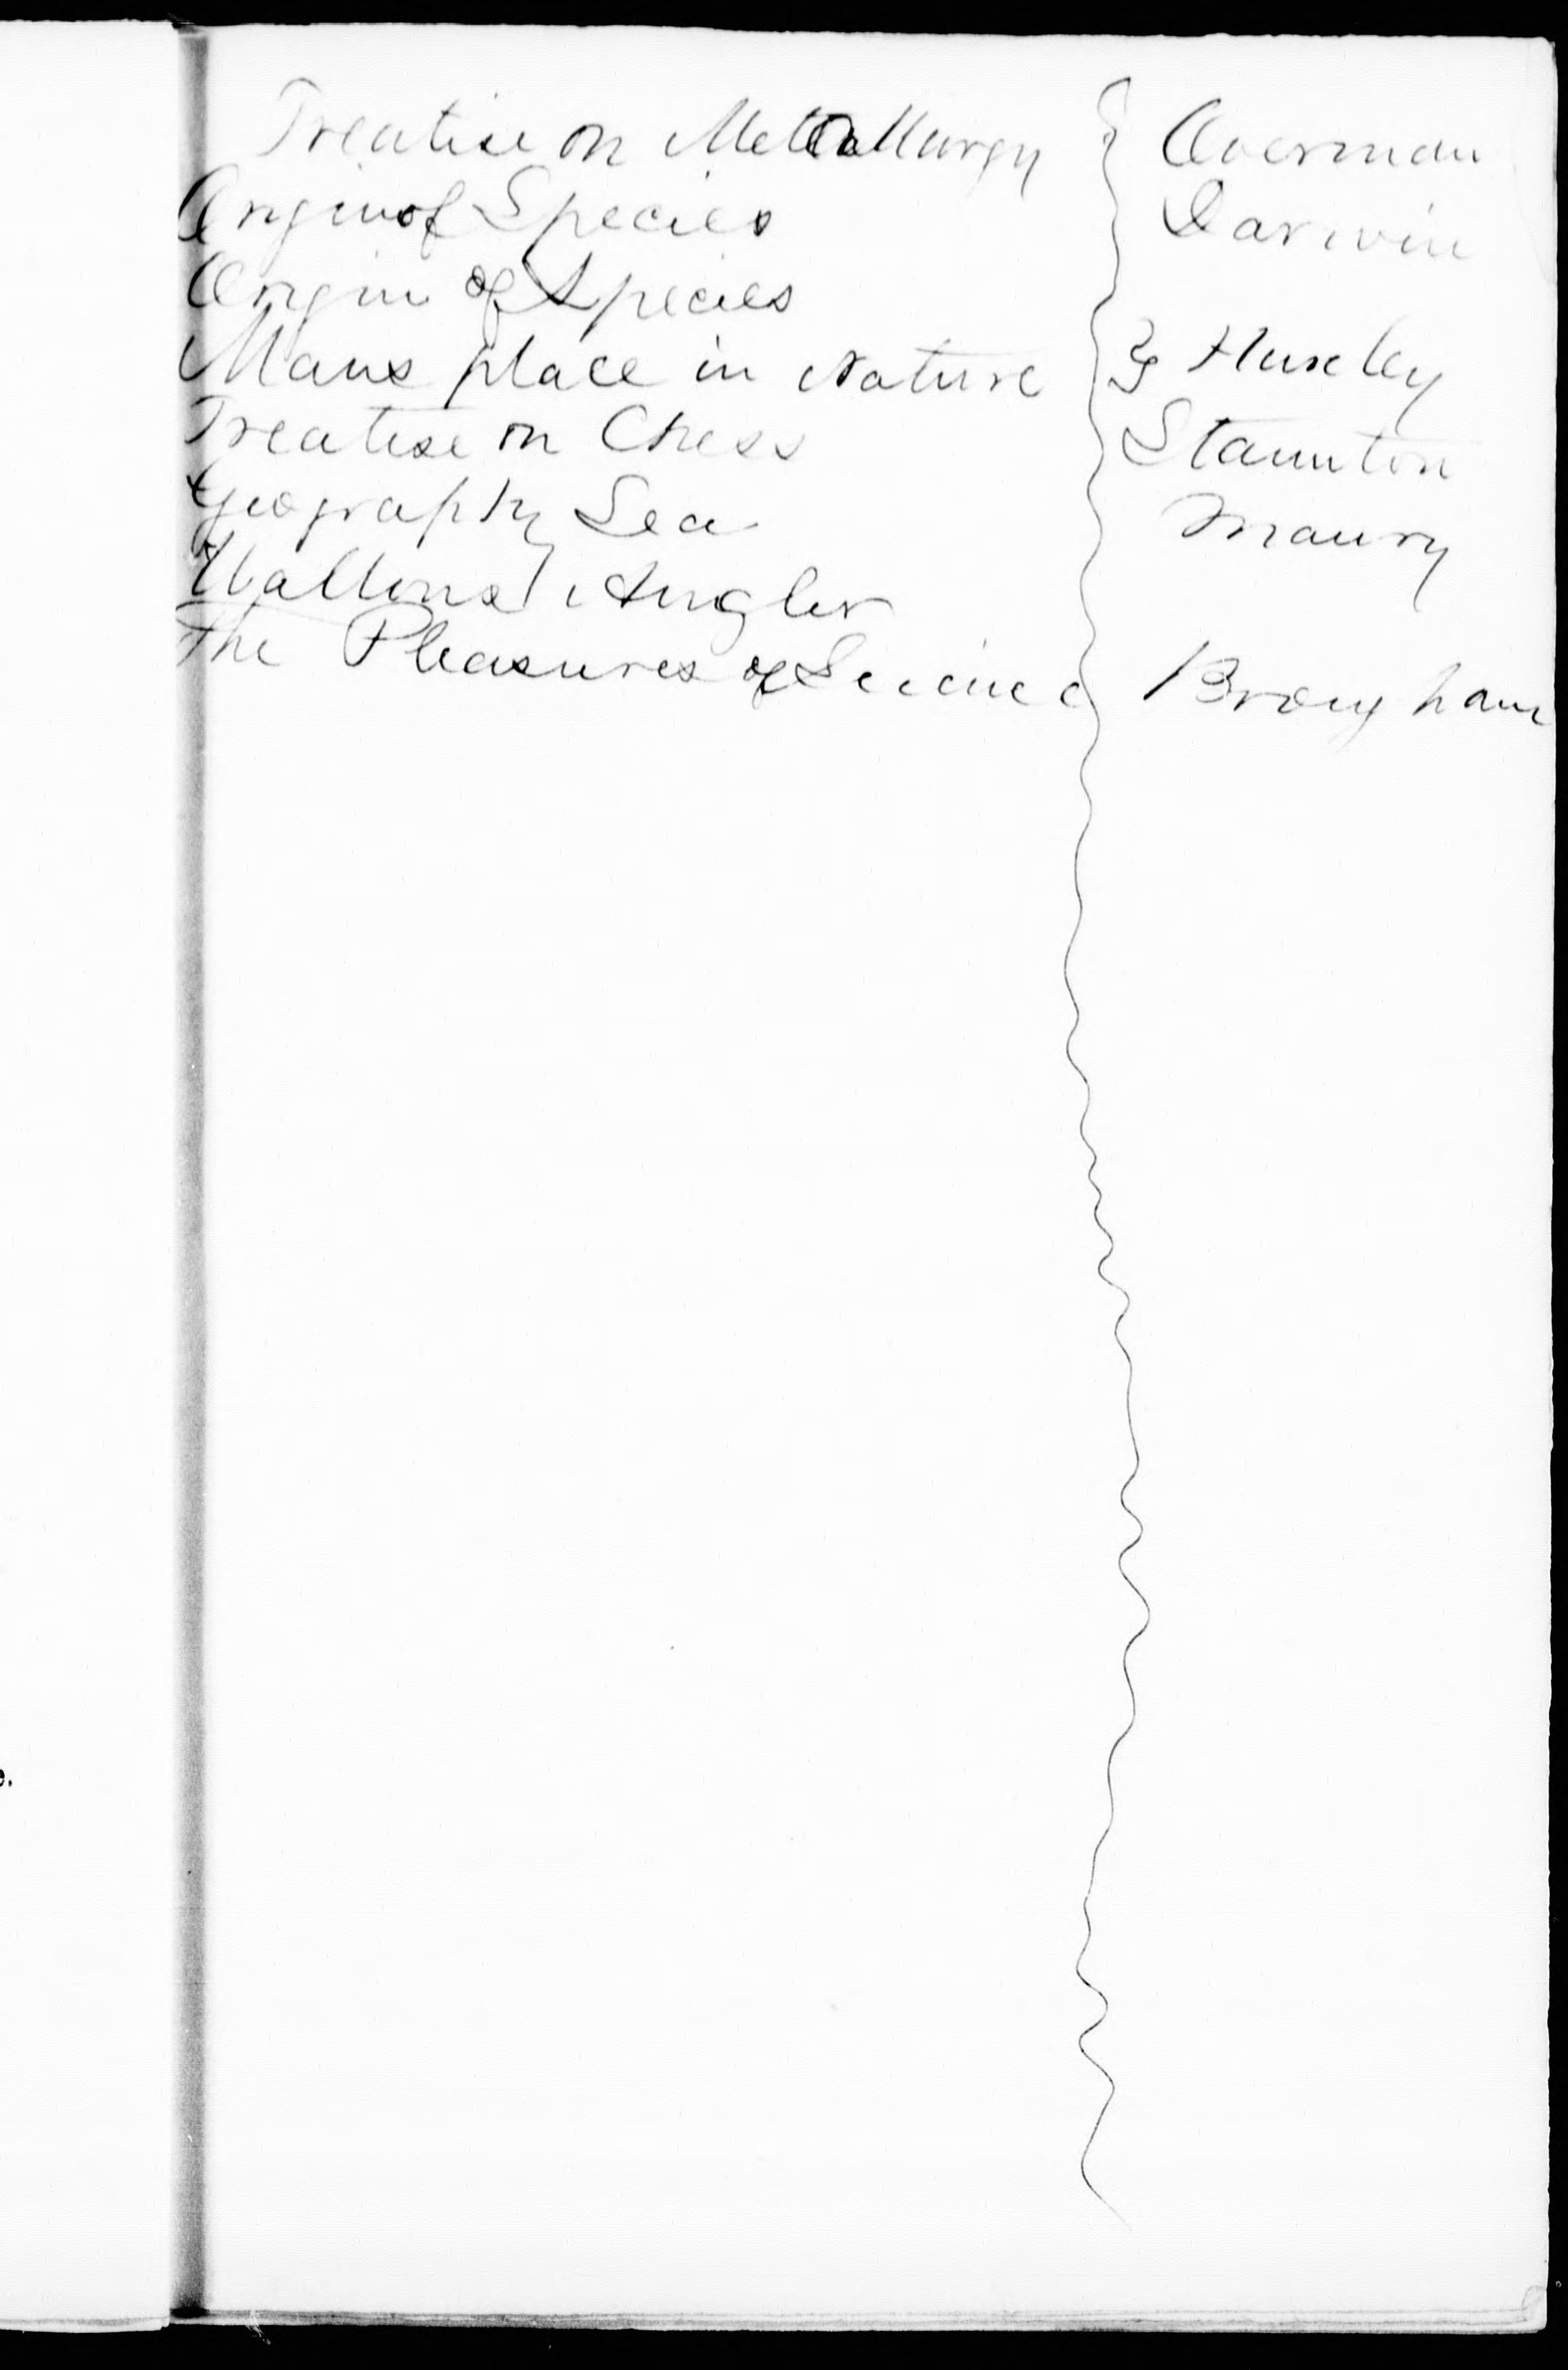 Treatise on Metallurgy Overman
Origin of Species Darwin
Origin of Species
Mans place in Nature } Huxley
Treatise on Chess Staunton
Geography Sea Maury
Waltons Angler
The Pleasures of Science Brougham
e.